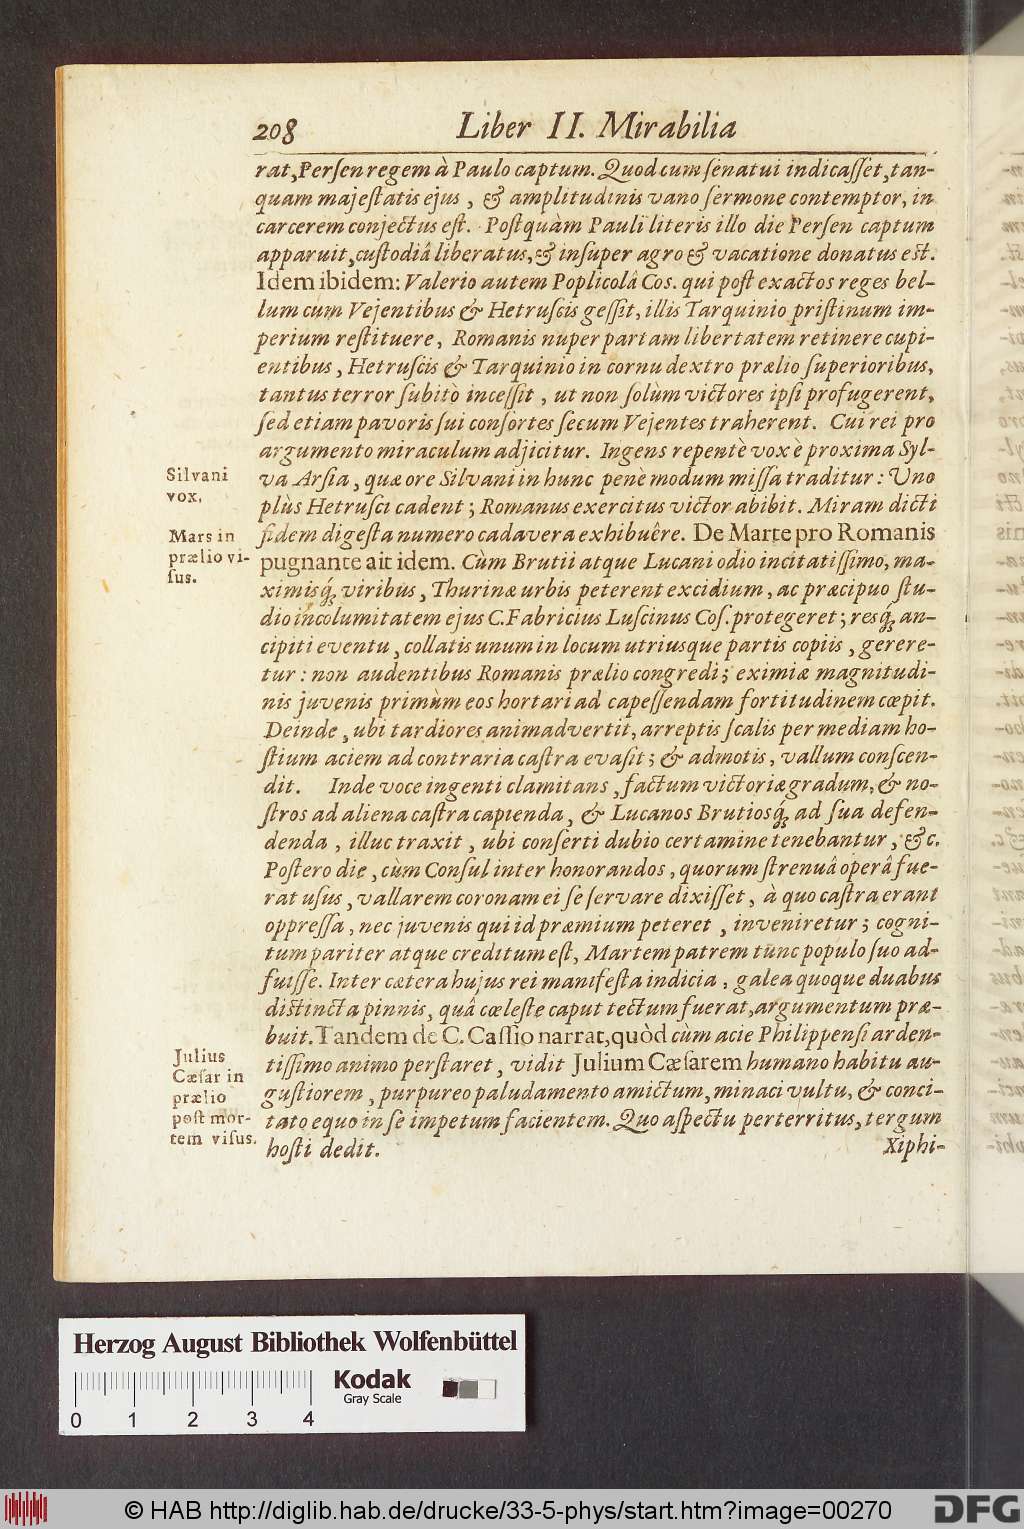 208 Liber II. Mirabilia
rat, Persen regem à Paulo captum. Quod cum senatui indicasset, tan-
quam majestatis ejus, & amplitudinis vano sermone contemptor, in
carcerem conjectus est. Postquàm Pauli literis illo die Persen captum
apparuit, custodiâ liberatus, & insuper agro & vacatione donatus est.
Idem ibidem: Valerio autem Poplicolâ Cos. qui post exactos reges bel-
lum cum Vejentibus & Hetruscis gessit, illis Tarquinio pristinum im-
perium restituere, Romanis nuper partam libertatem retinere cupi-
entibus, Hetruscis & Tarquinio in cornu dextro prælio superioribus,
tantus terror subitò incessit, ut non solùm victores ipsi profugerent,
sed etiam pavoris sui consortes secum Vejentes traherent. Cui rei pro
argumento miraculum adjicitur. Ingens repentè vox è proxima Syl-
va Arsia, quæ ore Silvani in hunc penè modum missa traditur: Uno
plùs Hetrusci cadent; Romanus exercitus victor abibit. Miram dicti
fidem digesta numero cadavera exhibuêre. De Marte pro Romanis
pugnante ait idem. Cùm Brutii atque Lucani odio incitatissimo, ma-
ximisq́; viribus, Thurinæ urbis peterent excidium, ac præcipuo stu-
dio incolumitatem ejus C. Fabricius Luscinus Cos. protegeret; resq́; an-
cipiti eventu, collatis unum in locum utriusque partis copiis, gerere-
tur: non audentibus Romanis prælio congredi; eximiæ magnitudi-
nis juvenis primùm eos hortari ad capessendam fortitudinem cœpit.
Deinde, ubi tardiores animadvertit, arreptis scalis per mediam ho-
stium aciem ad contraria castra evasit; & admotis, vallum conscen-
dit. Inde voce ingenti clamitans, factum victoriæ gradum, & no-
stros ad aliena castra capienda, & Lucanos Brutiosq́; ad sua defen-
denda, illuc traxit, ubi conserti dubio certamine tenebantur, &c.
Postero die, cùm Consul inter honorandos, quorum strenuâ operâ fue-
rat usus, vallarem coronam ei se servare dixisset, à quo castra erant
oppressa, nec juvenis qui id præmium peteret, inveniretur; cogni-
tum pariter atque creditum est, Martem patrem tunc populo suo ad-
fuisse. Inter cætera hujus rei manifesta indicia, galea quoque duabus
distincta pinnis, quâ cœleste caput tectum fuerat, argumentum præ-
buit. Tandem de C. Cassio narrat, quòd cùm acie Philippensi arden-
tissimo animo perstaret, vidit Julium Cæsarem humano habitu au-
gustiorem, purpureo paludamento amictum, minaci vultu, & conci-
tato equo in se impetum facientem. Quo aspectu perterritus, tergum
hosti dedit.
Xiphi-
Silvani
vox.
Mars in
prælio vi-
sus.
Julius
Cæsar in
prælio
post mor-
tem visus.
Herzog August Bibliothek Wolfenbüttel
Kodak
Gray Scale
0 1 2 3 4
© HAB http://diglib.hab.de/drucke/33-5-phys/start.htm?image=00270
DFG